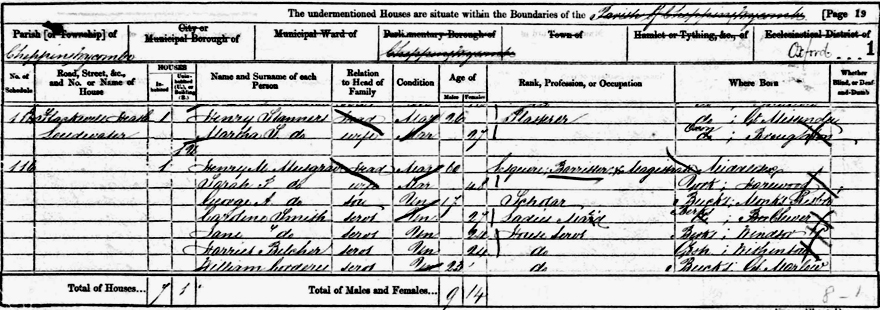 The undermentioned Houses are situate within the Boundaries of the Parish of Chepping Wycombe [Page 19
Parish [or Township] of City or Municipal Borough of Municipal Ward of Parliamentary Borough of Town of Hamlet or Tything, &c., of Ecclesiastical District of
Chepping Wycombe Chepping Wycombe Oxford 1
No. of Schedule Road, Street, &c., and No. or Name of House HOUSES Inhabited Uninhabited (U.), or Building (B.) Name and Surname of each Person Relation to Head of Family Condition Age of Males Females Rank, Profession, or Occupation Where Born Whether Blind, or Deaf-and-Dumb
115 Flackwell Heath 1 Henry Stanners Head Mar 26 Plasterer do ;
Loudwater Martha S. do wife Mar 27 do ;
116 1 Henry M. Musgrave Head Mar Esquire Barrister & Magistrate Middlesex
Sarah F. do wife Mar 48 York ; Harewood
George A. do son Un 17 Scholar Bucks ; Monks Risboro
Caroline Smith Serv Un 27 Ladies Maid Berks
Jane " do serv Un 24 House Serv Berks ; Windsor
Harriet Belcher serv Un 24 do
William serv Un 23 do Bucks ; Gt Marlow
Total of Houses... 7 1 Total of Males and Females... 9 14
8-1